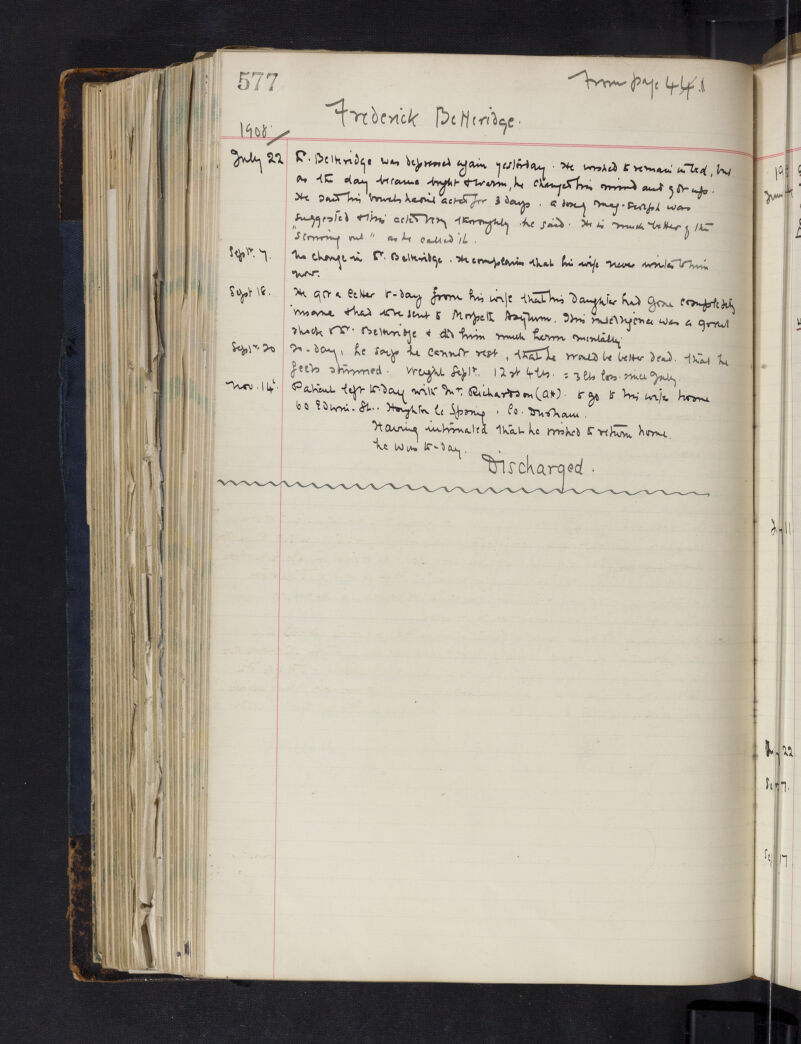 577
From page 448
Frederick Betteridge.
1908
July 22 Dr. Betteridge was depressed again yesterday. He wished to remain in bed, but
as the day became bright & warm, he changed his mind and got up.
He said his bowels hadn't acted for 3 days. a dose of mag. sulph was
suggested & this acted very thoroughly he said. He is much better of the
"scouring out" as he called it.
Sept. 7. No change in Dr. Betteridge. He complains that his wife never writes to him
now.
Sept 18. He got a letter to-day from his wife that his daughter had gone completely
insane & had been sent to Morpeth Asylum. This intelligence was a great
shock to Dr. Betteridge & did him much harm mentally.
Sept. 20 To-day, he says he cannot rest, that he would be better dead. that he
feels stunned. Weight Sept. 12 st 4 lbs. = 3 lbs loss since July.
Nov. 14. Patient left to-day with Mr. Richardson (att). to go to his wife's home
60 Edwin St. Houghton le Spring, Co. Durham.
Having intimated that he wished to return home.
he was to-day.
Discharged.
190
June
July 11
22
Sep 7.
Sep 17